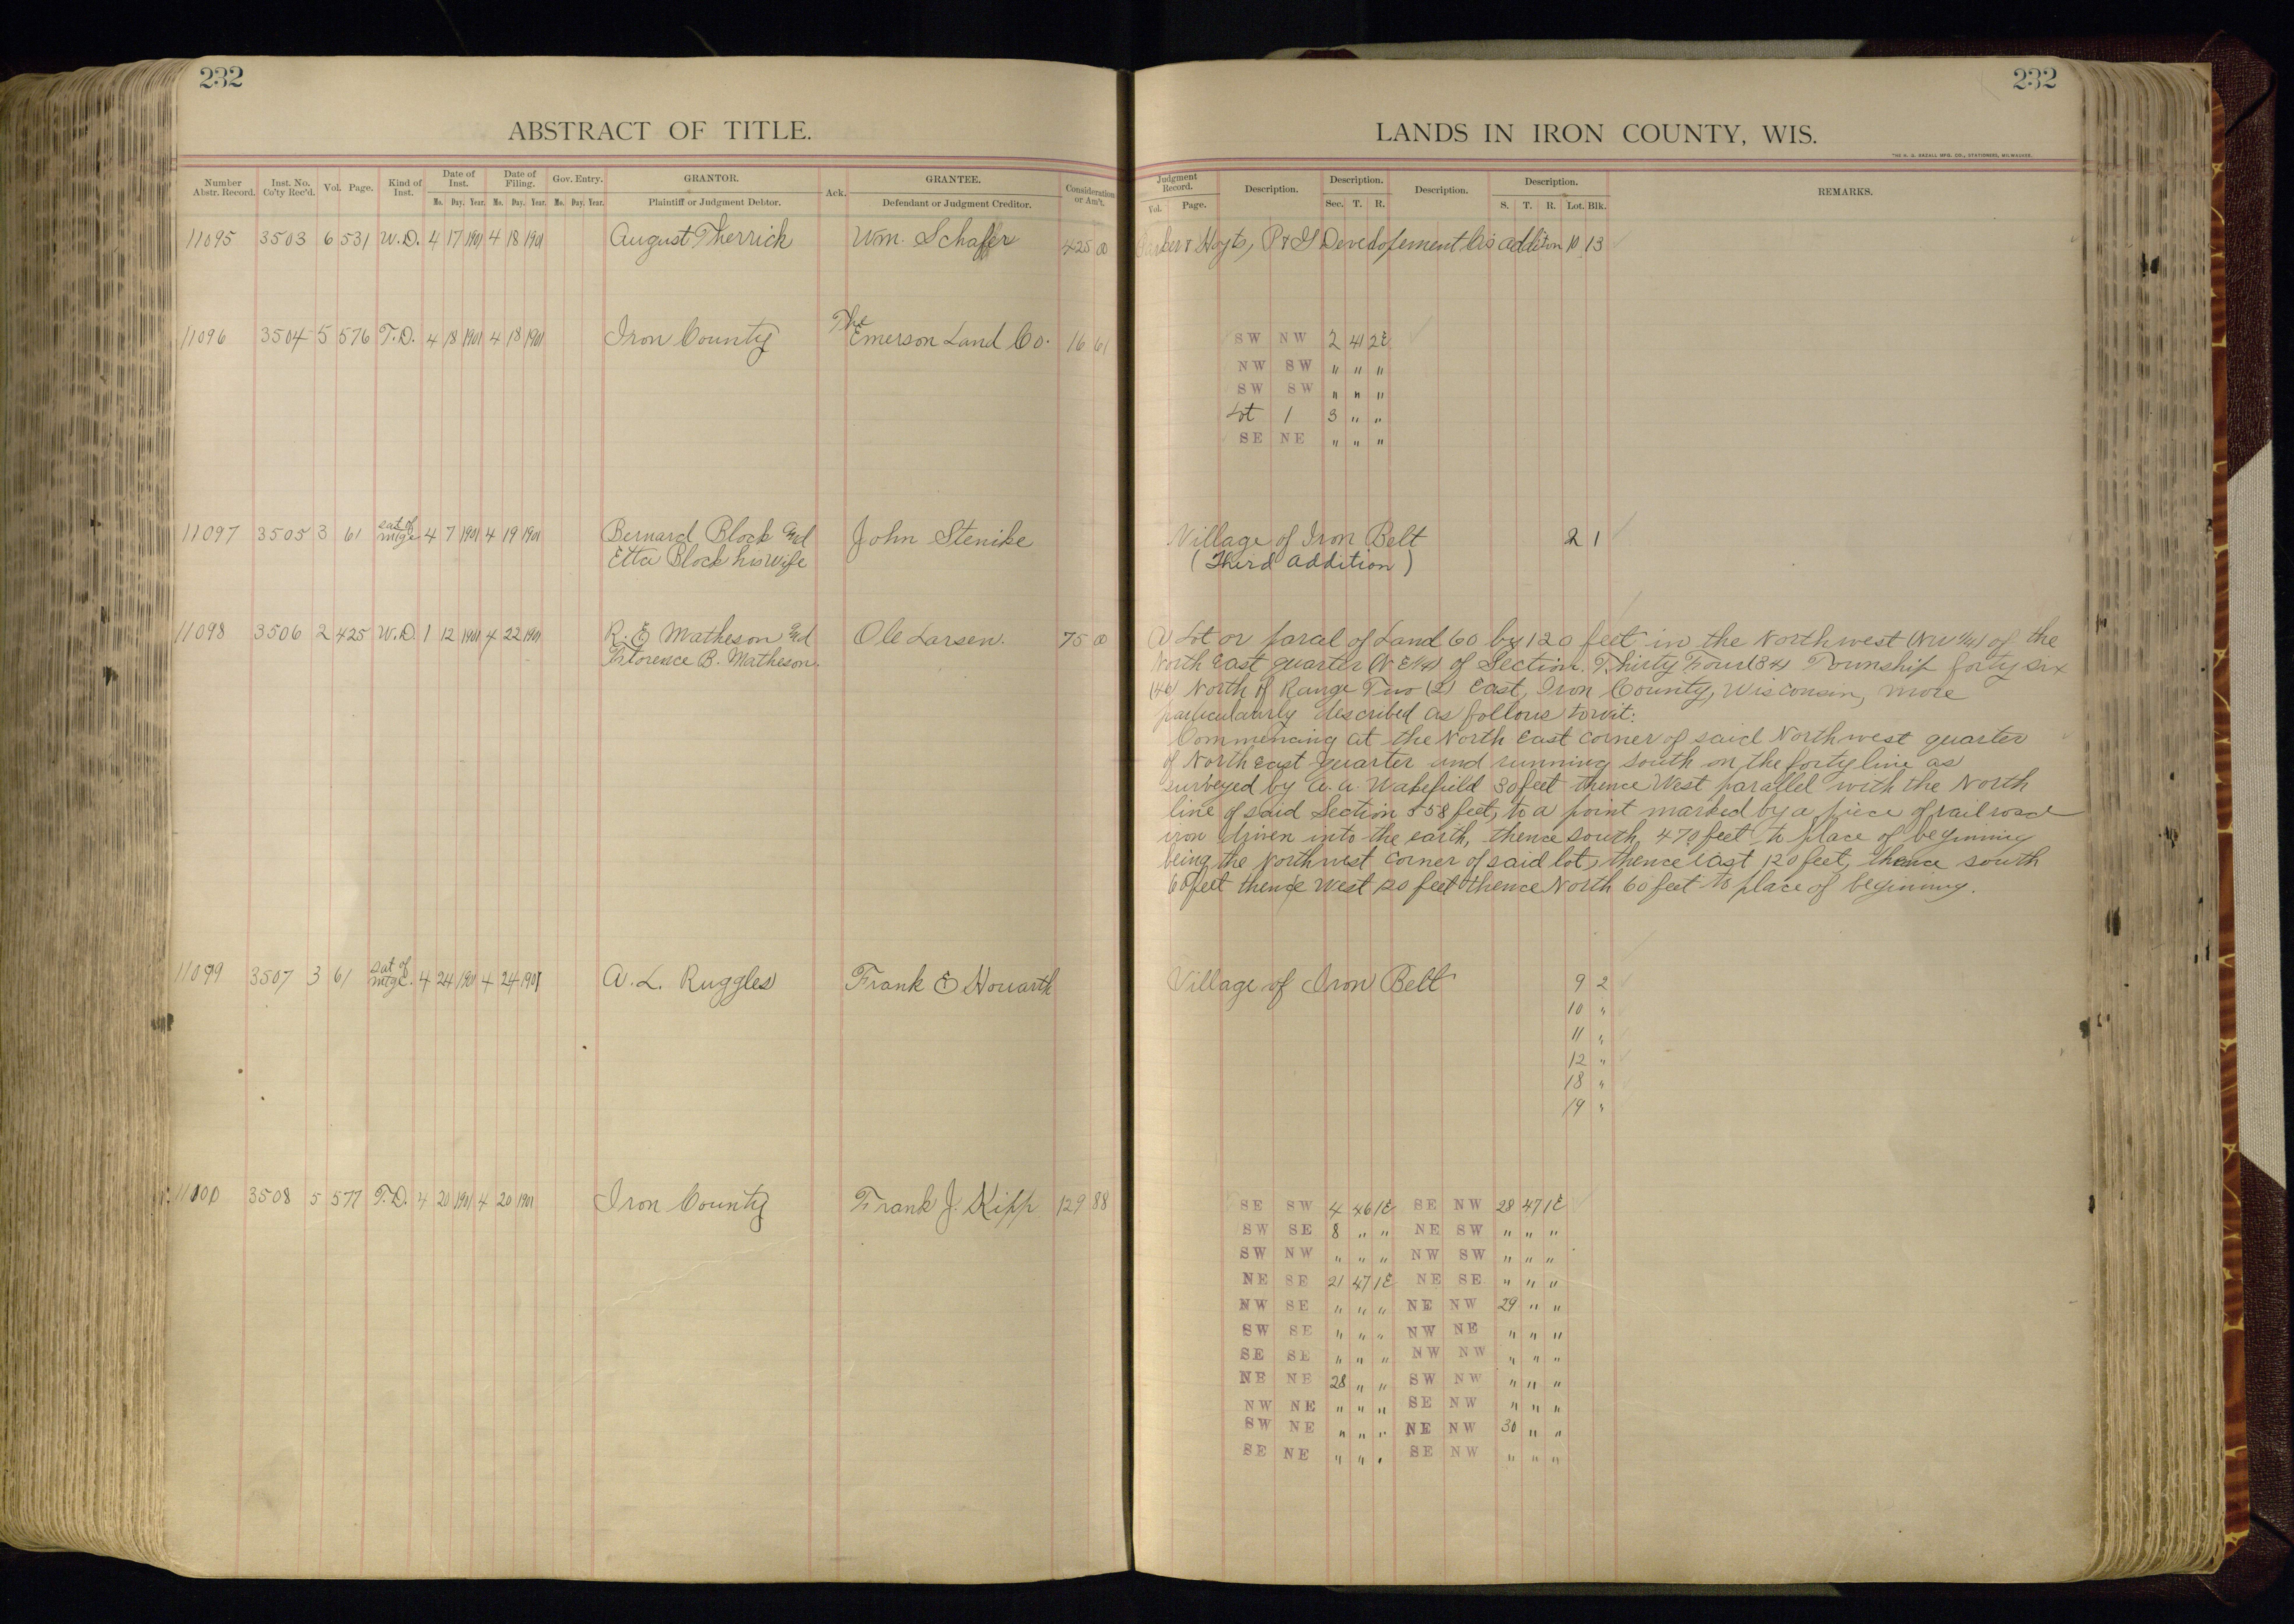 232
ABSTRACT OF TITLE.
Number Abstr. Record. Inst. No. Co'ty Rec'd. Vol. Page. Kind of Inst. Date of Inst. Mo. Day. Year. Date of Filing. Mo. Day. Year. Gov. Entry. Mo. Day. Year. GRANTOR. Plaintiff or Judgment Debtor. Ack. GRANTEE. Defendant or Judgment Creditor. Consideration or Am't.
11095 3503 6 531 W.D. 4 17 1901 4 18 1901 August Therrick Wm. Schafer 425 00
11096 3504 5 576 T.D. 4 18 1901 4 18 1901 Iron County The Emerson Land Co. 16 61
11097 3505 3 61 sat of mtge 4 7 1901 4 19 1901 Bernard Block and John Stenike
Etta Block his wife
11098 3506 2 425 W.D. 1 12 1901 4 22 1901 R. E. Matheson and Ole Larsen. 75 00
Florence B. Matheson.
11099 3507 3 61 sat of mtge. 4 24 1901 4 24 1901 A. L. Ruggles Frank E Howarth
11100 3508 5 577 T.D. 4 20 1901 4 20 1901 Iron County Frank J. Kipp 129 88
232
LANDS IN IRON COUNTY, WIS.
THE H. G. RAZALL MFG. CO., STATIONERS, MILWAUKEE.
Judgment Record. Vol. Page. Description. Description. Sec. T. R. Description. Description. S. T. R. Lot. Blk. REMARKS.
Hoyts, P & G Developement Co's addition 10 13
SW NW 2 41 2E
NW SW " " "
SW SW " " "
Lot 1 3 " "
SE NE " " "
Village of Iron Belt 2 1
(Third addition)
A Lot or parcel of Land 60 by 120 feet in the Northwest (NW 1/4) of the
North East quarter (N E 1/4) of Section Thirty Four (34) Township forty six
(46) North of Range Two (2) East, Iron County, Wisconsin, more
particularly described as follows towit:
Commencing at the North East corner of said Northwest quarter
of North East quarter and running south on the forty line as
surveyed by A. A. Wakefield 30 feet thence West parallel with the North
line of said Section 558 feet, to a point marked by a piece of rail road
iron driven into the earth, thence south 470 feet to place of beginning
being the Northwest corner of said lot, thence east 120 feet, thence south
60 feet thence West 120 feet thence North 60 feet to place of beginning.
Village of Iron Belt 9 2
10 "
11 "
12 "
18 "
19 "
SE SW 4 46 1E SE NW 28 47 1E
SW SE 8 " " NE SW " " "
SW NW " " " NW SW " " "
NE SE 21 47 1E NE SE " " "
NW SE " " " NE NW 29 " "
SW SE " " " NW NE " " "
SE SE " " " NW NW " " "
NE NE 28 " " SW NW " " "
NW NE " " " SE NW " " "
SW NE " " " NE NW 30 " "
SE NE " " " SE NW " " "